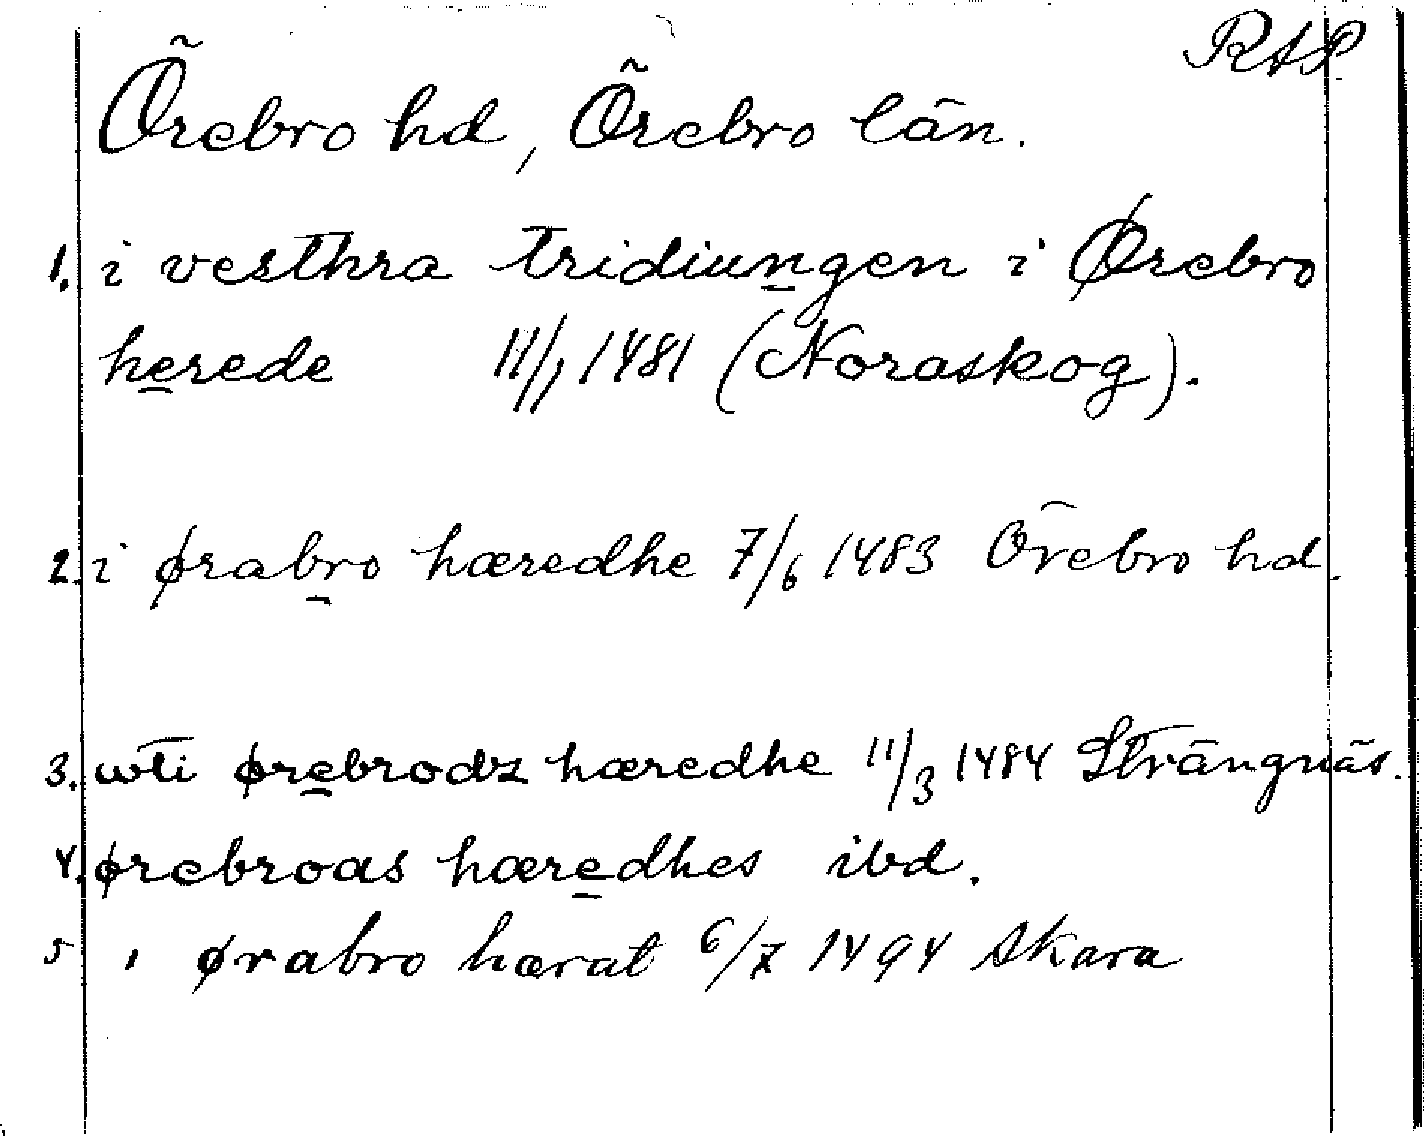 RAP.
Örebro hd, Örebro län.
1. i vesthra tridiungen i Ørebro
herede 11/1 1481 (Noraskog).
2. i ørabro hæredhe 7/6 1483 Örebro hd.
3. wti ørebrodz hæredhe 11/3 1484 Strängnäs.
4. ørebroas hæredhes ibd.
5 i ørabro hærat 6/7 1494 Skara